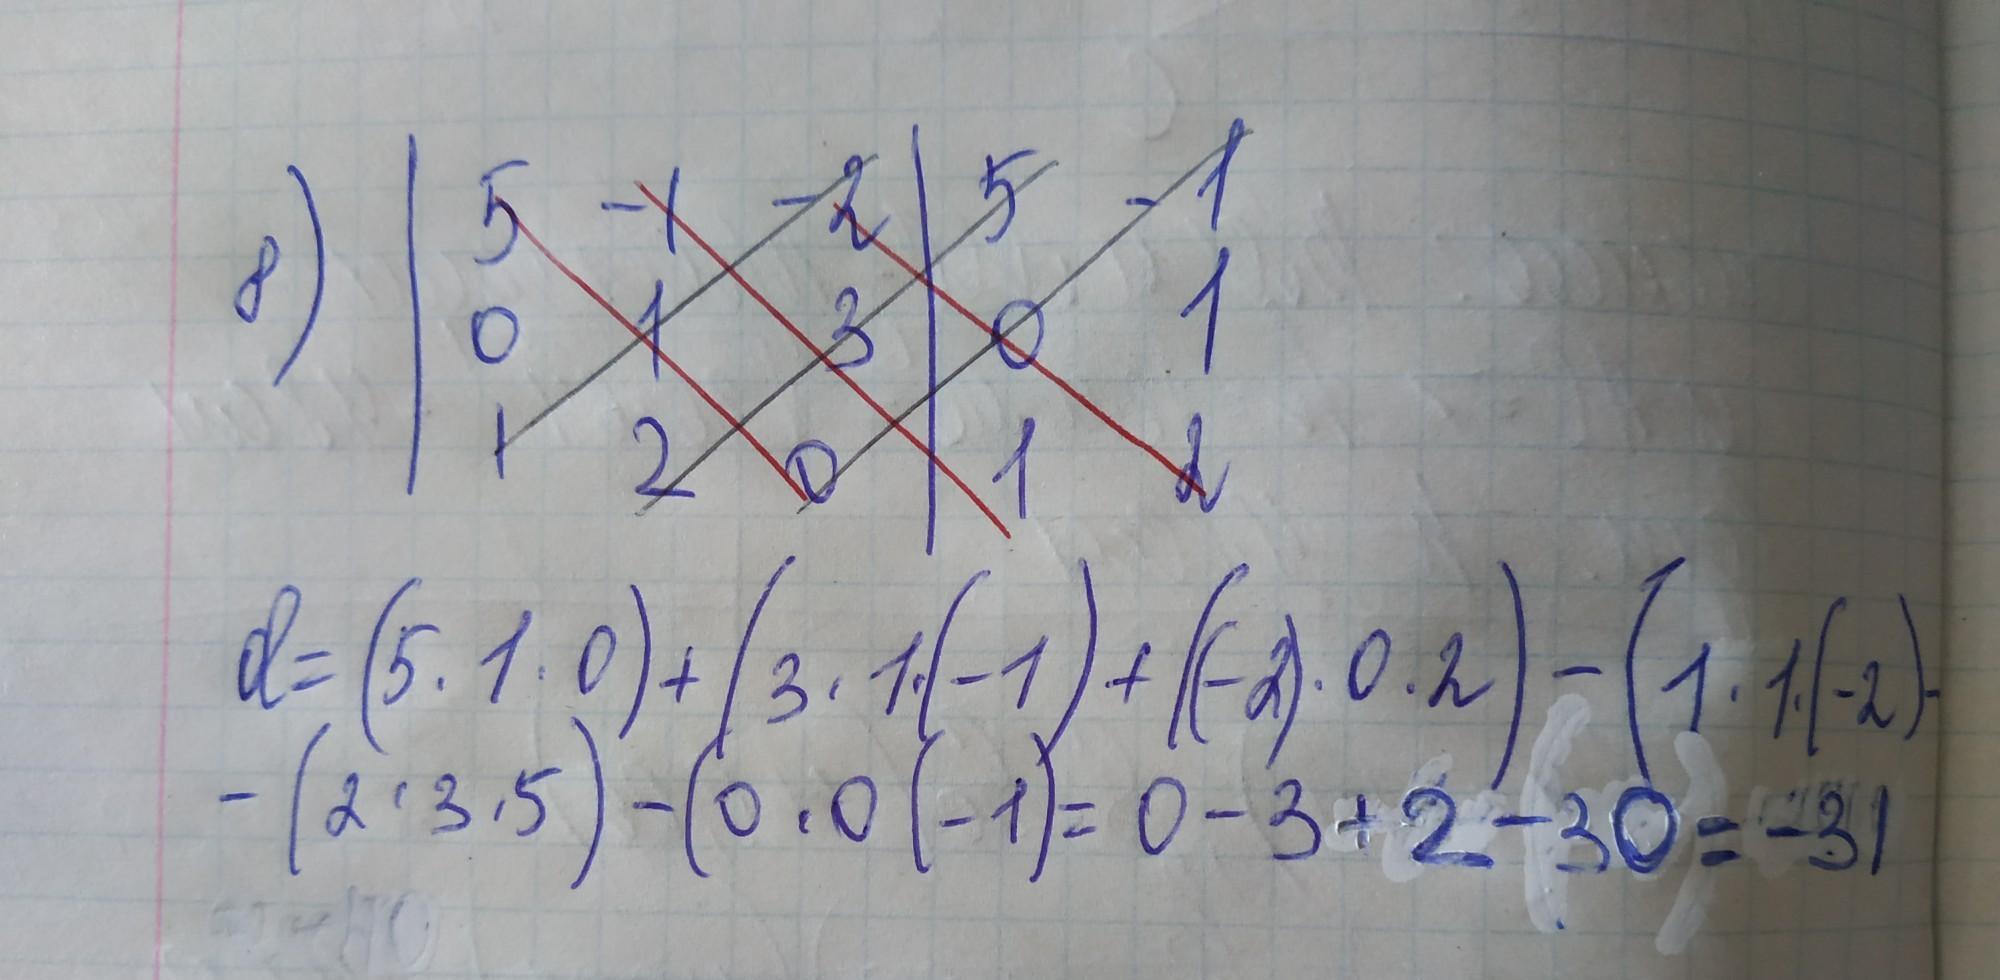 8) | 5 -1 -2 | 5 -1
0 1 3 0 1
1 2 0 1 2
d=(5·1·0)+(3·1·(-1)+((-2)·0·2)-(1·1·(-2)-
-(2·3·5)-(0·0(-1)=0-3+2-30=-31